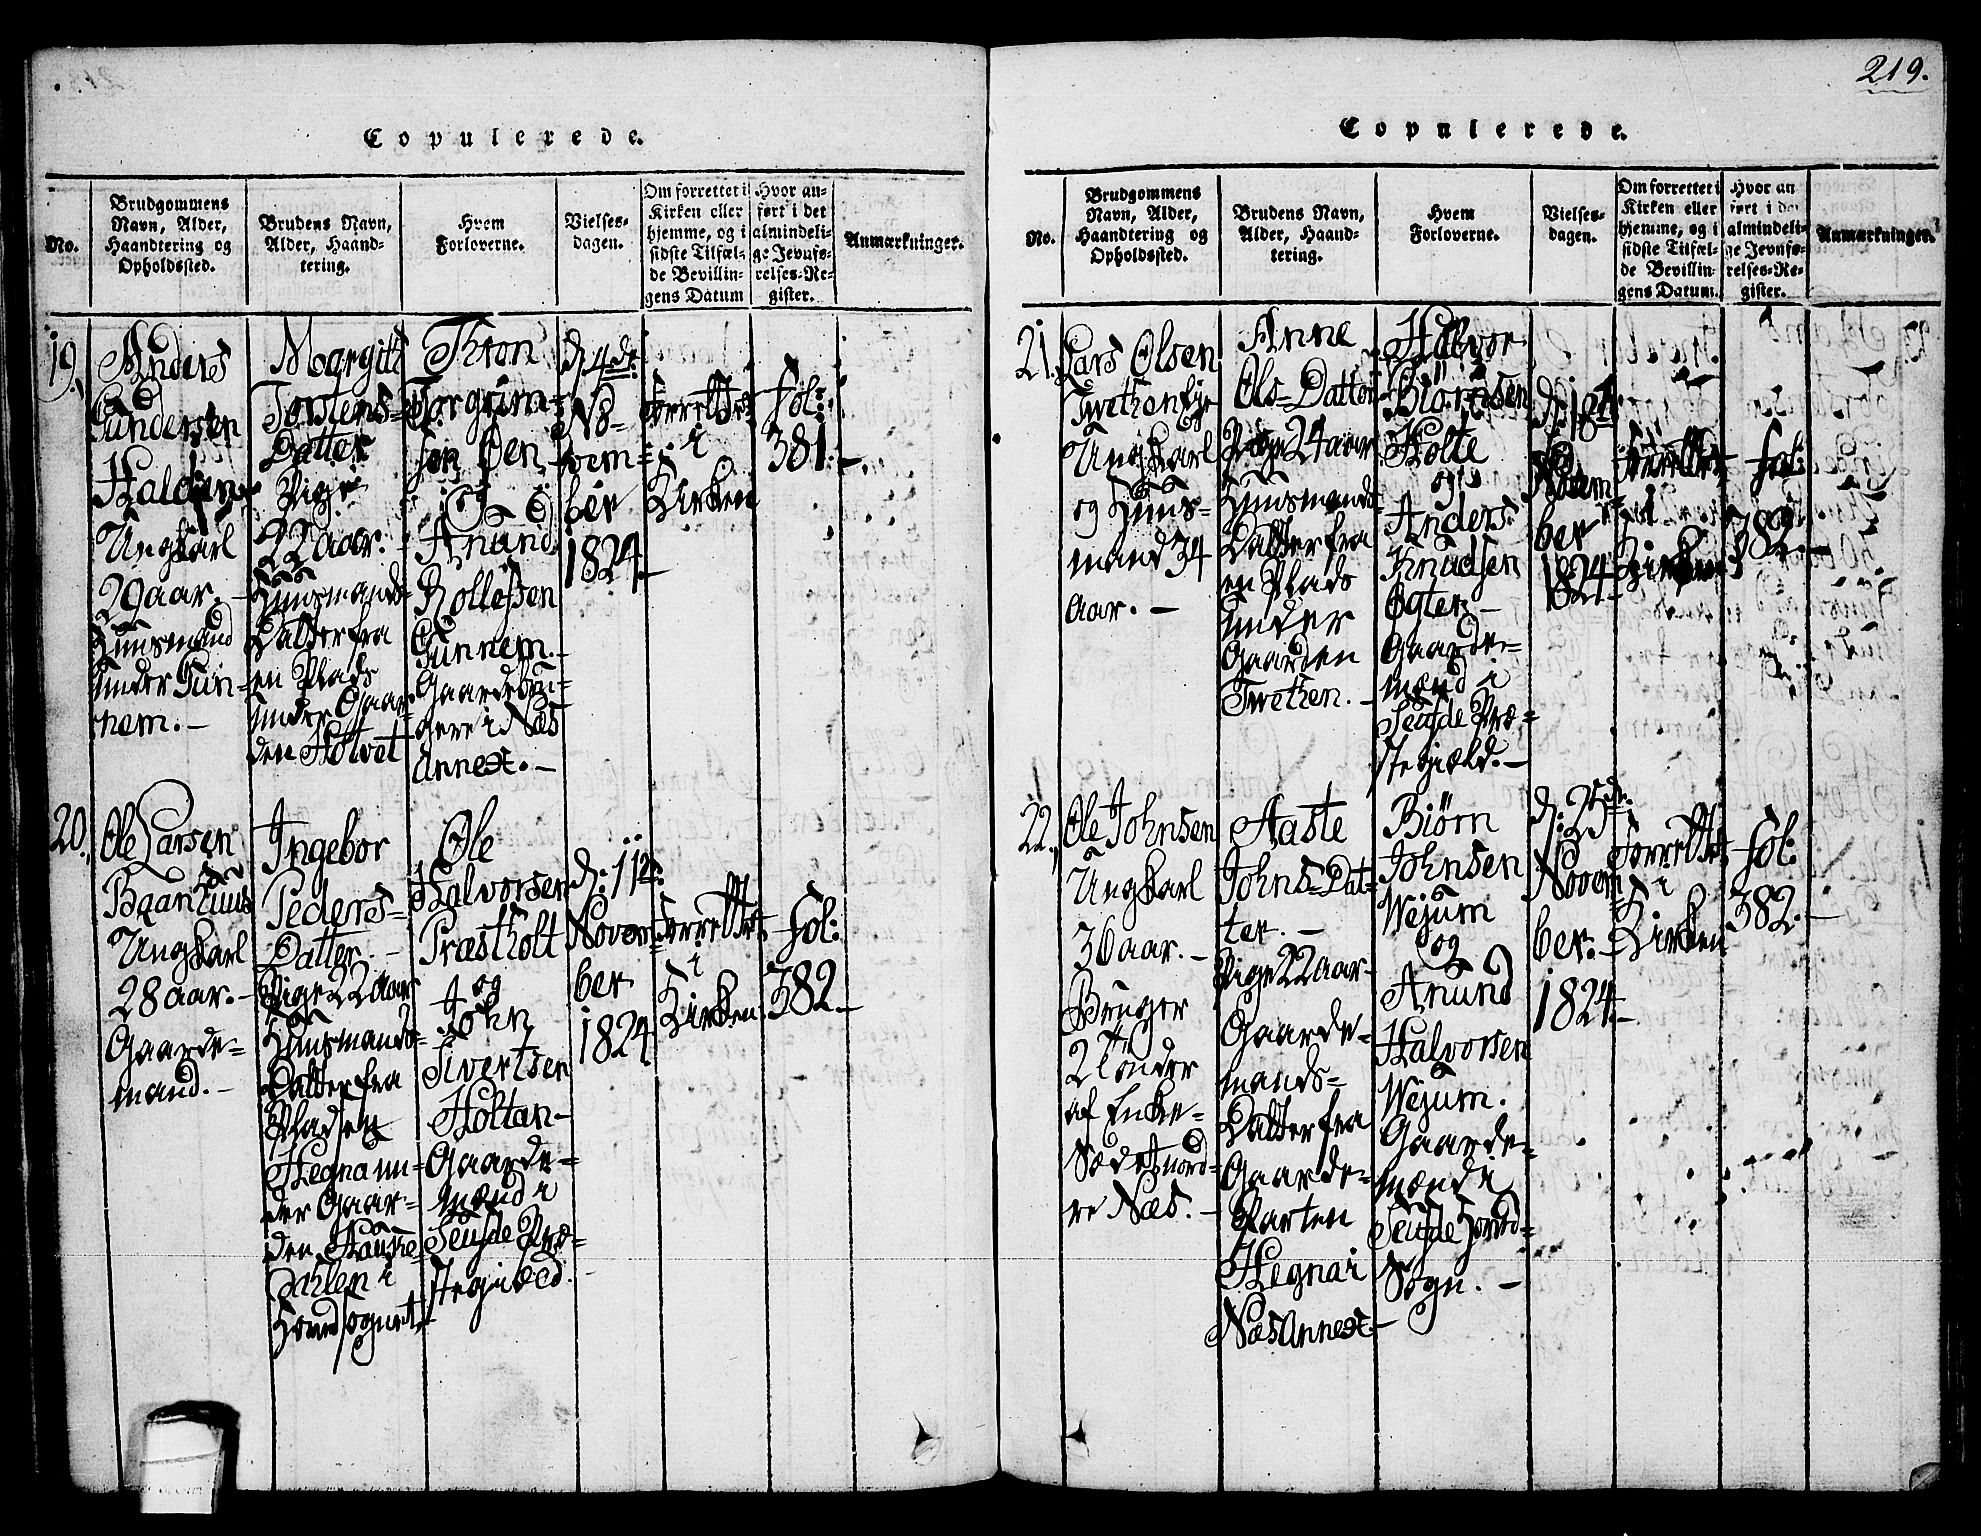 Copulerede.
No.
Brudgommens
Navn, Alder,
Haandtering og
Opholdssted.
Brudens Navn,
Alder, Haand-
tering.
Hvem
Forloverne.
Vielses-
dagen.
Om forrettet i
Kirken eller
hjemme, og i
sidste Tilfæl-
de Bevillin-
gens Datum
Hvor an-
ført i det
almindeli-
ge Jevnfø-
relses-Re-
gister.
Anmærkninger.
19.
Anders
Gundersen
Haldin
Ungkarl
29 aar.
Huusmand
under Gun-
nem.
Margith
Torstens-
Datter
Pige
22 aar.
Huusmands-
Datter fra
en Plads
under Gaar-
den Holtvet
Thron
Torgrim-
sen
og
Anund
Rollefsen
Gunnem.
Gaardebru-
gere i Næs
Annex.
d: 4de
No-
vem-
ber
1824.
Forrettet
i
Kirken
fol:
381.
20.
Ole Larsen
Baanhuus
Ungkarl
28 aar.
Gaarde-
mand.
Ingebor
Peders-
Datter.
Pige 22 aar
Huusmands-
Datter fra
Pladsen
Hegna un-
der Gaar-
den Hauke-
Dahlen i
Hovedsognet
Ole
Halvorsen
Præstholt
og
John
Sivertsen
Holtan
Gaarde-
mænd i
Seufde Præ-
stegiæld.
d: 11te
Novem-
ber
1824
Forrettet
i
Kirken
fol:
382.
219.
Copulerede.
No.
Brudgommens
Navn, Alder,
Haandtering og
Opholdssted.
Brudens Navn,
Alder, Haand-
tering.
Hvem
Forloverne.
Vielses-
dagen.
Om forrettet i
Kirken eller
hjemme, og i
sidste Tilfæl-
de Bevillin-
gens Datum.
Hvor an
ført i det
almindeli-
ge Jevnfø-
relses-Re-
gister.
Anmærkninger.
21.
Lars Olsen
Twethen Eje
Ungkarl
og Huus-
mand 34
aar.
Anne
Ols-Datter
Pige 24 aar
Huusmands-
Datter fra
en Plads
under
Gaarden
Twethen.
Halvor
Biørnsen
Holte
og
Anders
Knudsen
Øgter
Gaarde-
mænd i
Seufde Præ-
stegiæld.
d: 18de
Novem-
ber
1824
Forrettet
i
Kirken
fol:
382.
22.
Ole Johnsen
Ungkarl
36 aar.
Bruger
2 Tønder
af Enke-
Sædet nord-
re Næs.
Aaste
Johns-Dat-
ter.
Pige 22 aar
Gaarde-
mands-
Datter fra
Gaarde-
Parten
Hegna i
Næs Annex.
Biørn
Johnsen
Wejum
og
Anund
Halvorsen
Wejum.
Gaarde-
mænd i
Seufde Hoved-
Sogn.
d: 25de
Novem-
ber.
1824.
Forrettet
i
Kirken
fol:
382.